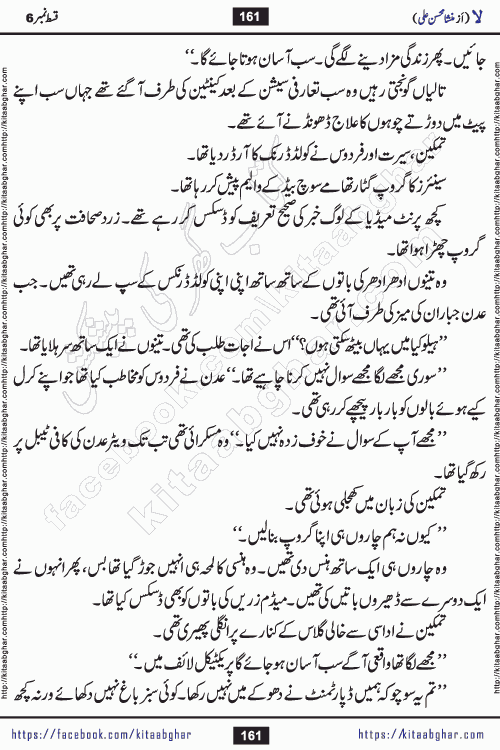 لا (از منشا محسن علی)
161
قسط نمبر 6
جائیں۔ پھر زندگی مزا دینے لگے گی۔ سب آسان ہوتا جائے گا۔‘‘
تالیاں گونجتی رہیں وہ سب تعارفی سیشن کے بعد کینٹین کی طرف آ گئے تھے جہاں سب اپنے
پیٹ میں دوڑتے چوہوں کا علاج ڈھونڈنے آئے تھے۔
تمکین، سیرت اور فردوس نے کولڈ ڈرنک کا آرڈر دیا تھا۔
سینئرز کا گروپ گٹار تھامے سوچ بینڈ کے وائیم پیش کر رہا تھا۔
کچھ پرنٹ میڈیا کے لوگ خبر کی صحیح تعریف کو ڈسکس کر رہے تھے۔ زرد صحافت پر بھی کوئی
گروپ چھڑا ہوا تھا۔
وہ تینوں ادھر ادھر کی باتوں کے ساتھ ساتھ اپنی اپنی کولڈ ڈرنکس کے سپ لے رہی تھیں۔ جب
عدن جنبار ان کی میز کی طرف آئی تھی۔
’’ہیلو کیا میں یہاں بیٹھ سکتی ہوں؟‘‘ اس نے اجات طلب کی تھی۔ تینوں نے ایک ساتھ سر ہلایا تھا۔
’’سوری مجھے لگا مجھے سوال نہیں کرنا چاہیے تھا۔‘‘ عدن نے فردوس کو مخاطب کیا تھا جو اپنے کرل
کیے ہوئے بالوں کو بار بار پیچھے کر رہی تھی۔
’’مجھے آپ کے سوال نے خوف زدہ نہیں کیا۔‘‘ وہ مسکرائی تھی تب تک ویٹر عدن کی کافی ٹیبل پر
رکھ گیا تھا۔
تمکین کی زبان میں کھجلی ہوئی تھی۔
’’کیوں نہ ہم چاروں ہی اپنا گروپ بنا لیں۔‘‘
وہ چاروں ہی ایک ساتھ ہنس دی تھیں۔ وہ ہنسی کا لمحہ ہی انہیں جوڑ گیا تھا بس، پھر انہوں نے
ایک دوسرے سے ڈھیروں باتیں کی تھیں۔ میڈم زریں کی باتوں کو بھی ڈسکس کیا تھا۔
تمکین نے اداسی سے خالی گلاس کے کنارے پر انگلی پھیری تھی۔
’’مجھے لگا تھا واقعی آگے سب آسان ہو جائے گا پریکٹیکل لائف میں۔‘‘
’’تم یہ سوچو کہ ہمیں ڈپارٹمنٹ نے دھوکے میں نہیں رکھا۔ کوئی سبز باغ نہیں دکھائے ورنہ کچھ
https://facebook.com/kitaabghar
161
https://kitaabghar.com